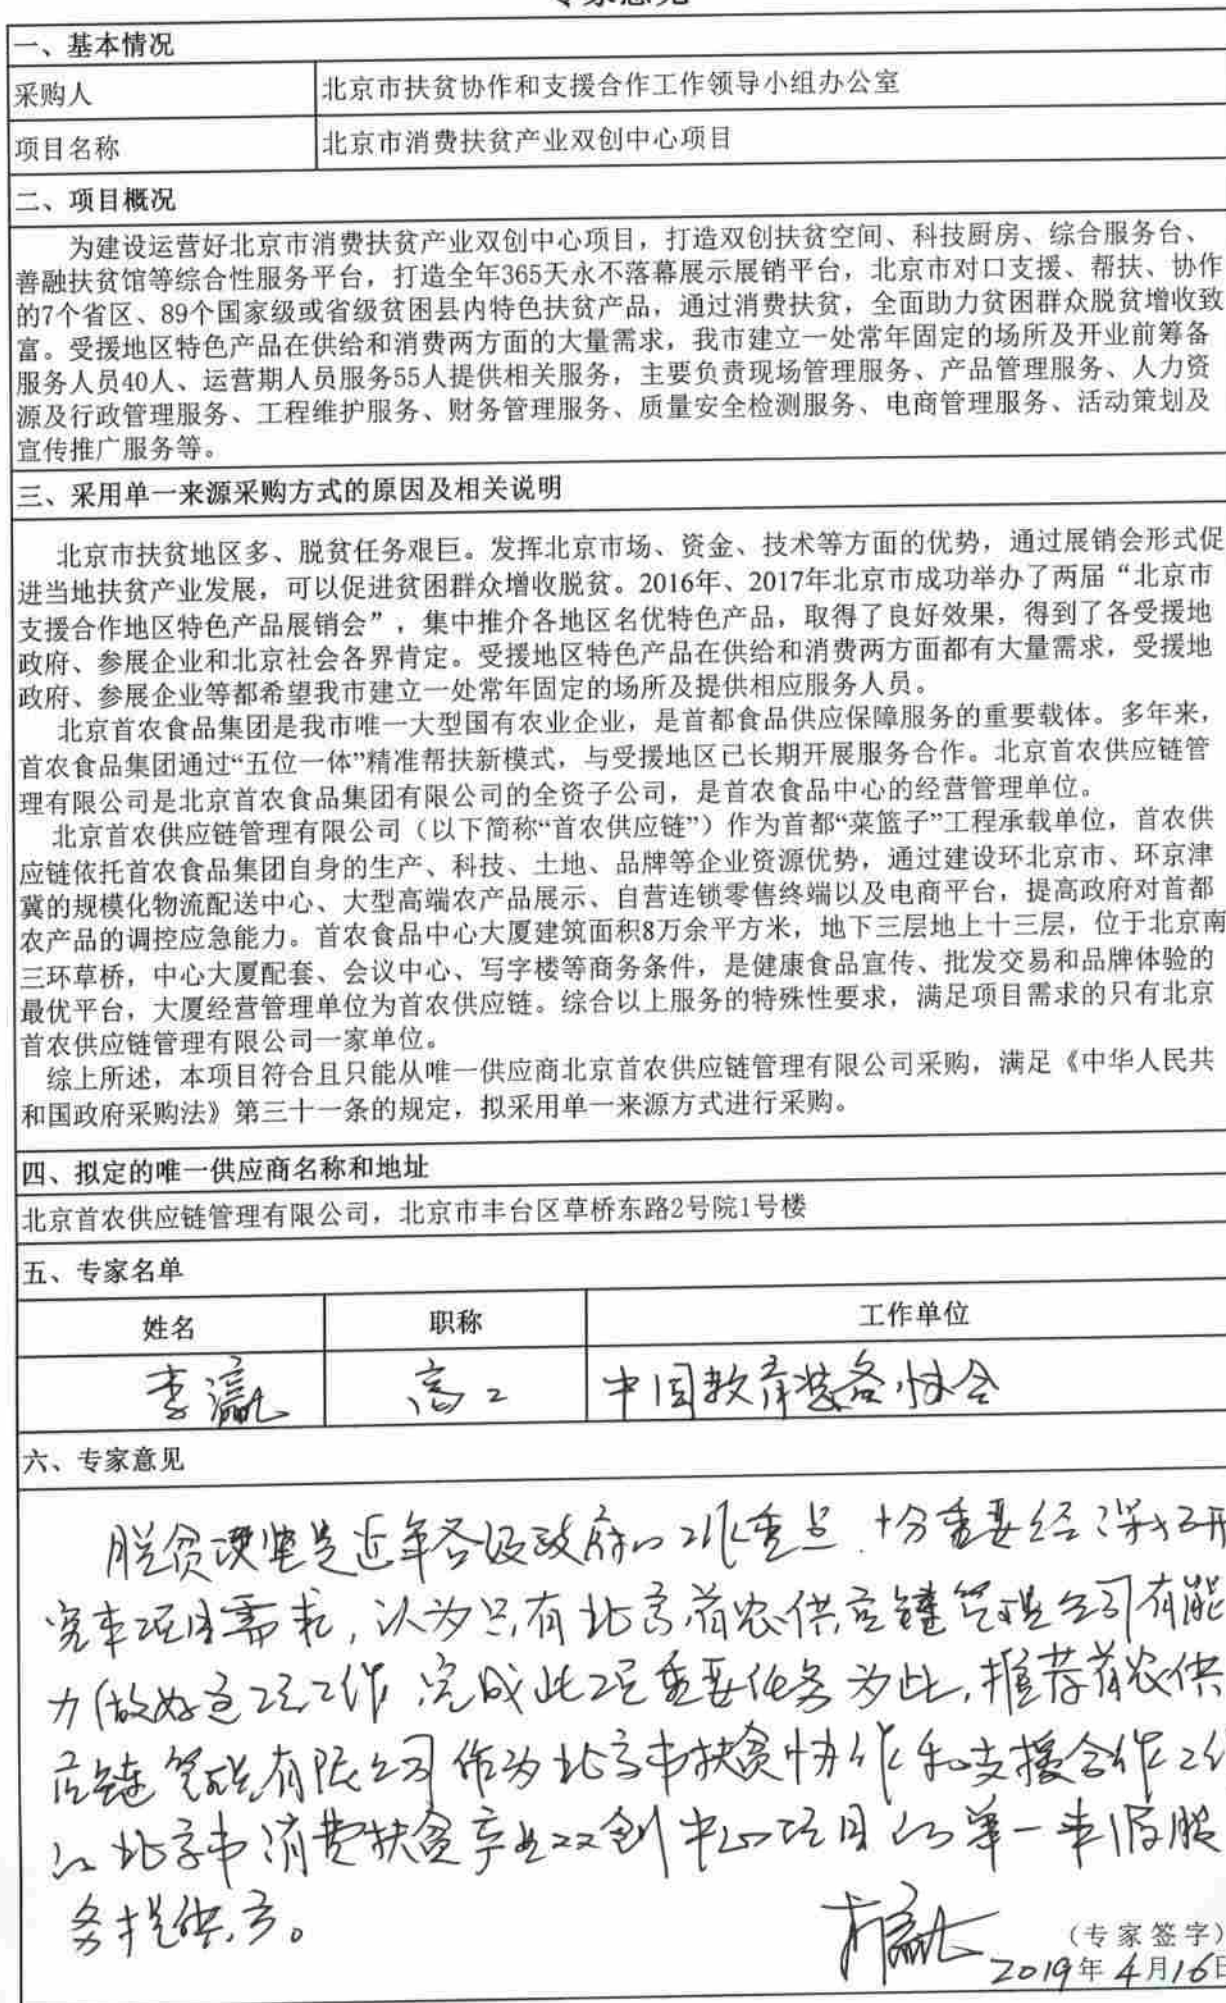 专家意见
一、基本情况
采购人 北京市扶贫协作和支援合作工作领导小组办公室
项目名称 北京市消费扶贫产业双创中心项目
二、项目概况
为建设运营好北京市消费扶贫产业双创中心项目，打造双创扶贫空间、科技厨房、综合服务台、
善融扶贫馆等综合性服务平台，打造全年365天永不落幕展示展销平台，北京市对口支援、帮扶、协作
的7个省区、89个国家级或省级贫困县内特色扶贫产品，通过消费扶贫，全面助力贫困群众脱贫增收致
富。受援地区特色产品在供给和消费两方面的大量需求，我市建立一处常年固定的场所及开业前筹备
服务人员40人、运营期人员服务55人提供相关服务，主要负责现场管理服务、产品管理服务、人力资
源及行政管理服务、工程维护服务、财务管理服务、质量安全检测服务、电商管理服务、活动策划及
宣传推广服务等。
三、采用单一来源采购方式的原因及相关说明
北京市扶贫地区多、脱贫任务艰巨。发挥北京市场、资金、技术等方面的优势，通过展销会形式促
进当地扶贫产业发展，可以促进贫困群众增收脱贫。2016年、2017年北京市成功举办了两届“北京市
支援合作地区特色产品展销会”，集中推介各地区名优特色产品，取得了良好效果，得到了各受援地
政府、参展企业和北京社会各界肯定。受援地区特色产品在供给和消费两方面都有大量需求，受援地
政府、参展企业等都希望我市建立一处常年固定的场所及提供相应服务人员。
北京首农食品集团是我市唯一大型国有农业企业，是首都食品供应保障服务的重要载体。多年来，
首农食品集团通过“五位一体”精准帮扶新模式，与受援地区已长期开展服务合作。北京首农供应链管
理有限公司是北京首农食品集团有限公司的全资子公司，是首农食品中心的经营管理单位。
北京首农供应链管理有限公司（以下简称“首农供应链”）作为首都“菜篮子”工程承载单位，首农供
应链依托首农食品集团自身的生产、科技、土地、品牌等企业资源优势，通过建设环北京市、环京津
冀的规模化物流配送中心、大型高端农产品展示、自营连锁零售终端以及电商平台，提高政府对首都
农产品的调控应急能力。首农食品中心大厦建筑面积8万余平方米，地下三层地上十三层，位于北京南
三环草桥，中心大厦配套、会议中心、写字楼等商务条件，是健康食品宣传、批发交易和品牌体验的
最优平台，大厦经营管理单位为首农供应链。综合以上服务的特殊性要求，满足项目需求的只有北京
首农供应链管理有限公司一家单位。
综上所述，本项目符合且只能从唯一供应商北京首农供应链管理有限公司采购，满足《中华人民共
和国政府采购法》第三十一条的规定，拟采用单一来源方式进行采购。
四、拟定的唯一供应商名称和地址
北京首农供应链管理有限公司，北京市丰台区草桥东路2号院1号楼
五、专家名单
姓名 职称 工作单位
李瀛 高工 中国教育装备协会
六、专家意见
脱贫攻坚是近年各级政府的工作重点，十分重要经深入研
究本项目需求，认为只有北京首农供应链管理公司有能
力做好这项工作 完成此项重要任务 为此，推荐首农供
应链管理有限公司作为北京市扶贫协作和支援合作工作
的北京市消费扶贫产业双创中心项目的单一来源服
务提供方。
李瀛 （专家签字）
2019年4月16日